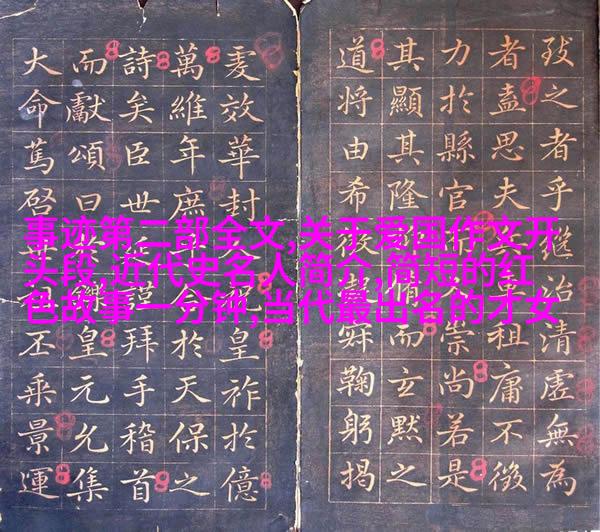 事迹第二部全文,关于爱国作文开
头段,近代史名人简介,简短的红
色故事一分钟,当代最出名的才女
致之者乎繼治清虛無為
者盍思夫租庸不徵
力於縣官崇尚若是
其顯其隆脩而玄默之
道將由希鞠躬揭
效華封皇祚於億
萬維年庶於天保之
詩矣臣世謹拜手稽首
而獻頌曰皇元允集
大命篤啓丕乘景運